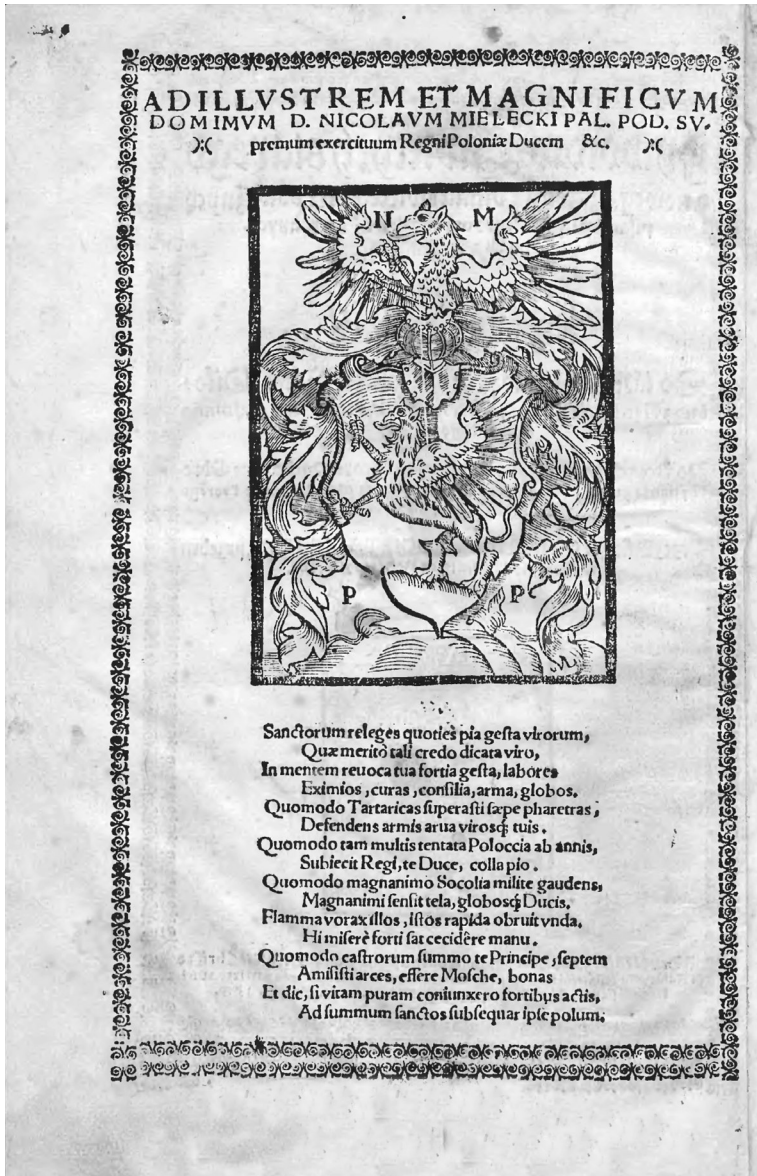 ADILLVSTREM ET MAGNIFICVM
DOMIMVM D. NICOLAVM MIELECKI PAL. POD. SV-
premum exercituum Regni Poloniæ Ducem &c.
N M
P P
Sanctorum releges quoties pia gesta virorum,
Quæ meritò tali credo dicata viro,
In mentem reuoca tua fortia gesta, labores
Eximios, curas, consilia, arma, globos.
Quomodo Tartaricas superasti sæpe pharetras;
Defendens armis arua virosq́; tuis.
Quomodo tam multis tentata Poloccia ab annis,
Subiecit Regi, te Duce, colla pio.
Quomodo magnanimo Socolia milite gaudens,
Magnanimi sensit tela, globosq́; Ducis.
Flamma vorax illos, istos rapida obruit vnda.
Hi miserè forti sat cecidêre manu.
Quomodo castrorum summo te Principe, septem
Amisisti arces, effere Mosche, bonas
Et dic, si vitam puram coniunxero fortibus actis,
Ad summum sanctos subsequar ipse polum.